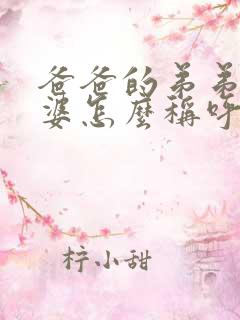 爸爸的弟弟
婆怎麼稱呼
梓小甜